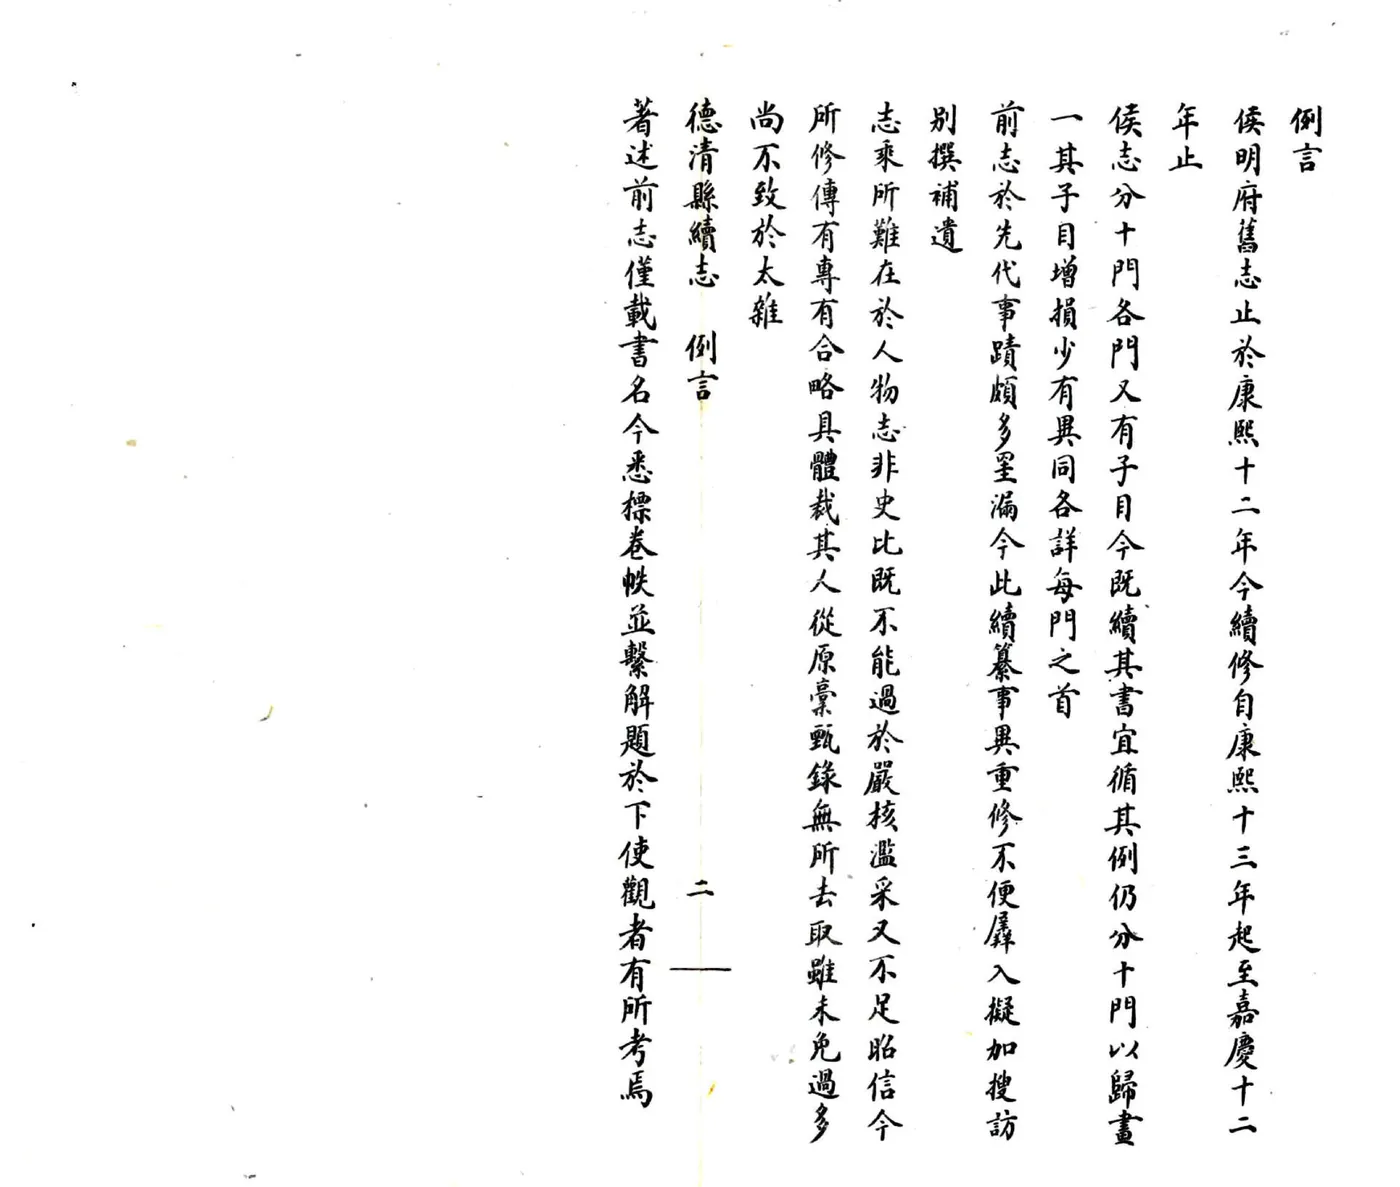 例言
侯明府舊志止於康熙十二年今續修自康熙十三年起至嘉慶十二
年止
侯志分十門各門又有子目今既續其書宜循其例仍分十門以歸畫
一其子目增損少有異同各詳每門之首
前志於先代事蹟頗多罣漏今此續纂事異重修不便羼入擬加搜訪
別撰補遺
志乘所難在於人物志非史比既不能過於嚴核濫采又不足昭信今
所修傳有專有合略具體裁其人從原稾甄錄無所去取雖未免過多
尚不致於太雜
德清縣續志 例言 二
著述前志僅載書名今悉標卷帙並繫解題於下使觀者有所考焉